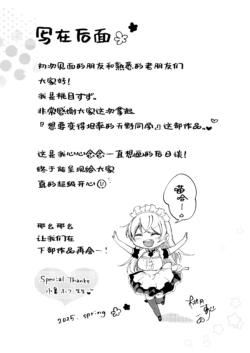 写在后面
初次见面的朋友和熟悉的老朋友们
大家好！
我是桃目すず。
非常感谢大家这次拿起
『想要变得坦率的天野同学』这部作品。
这是我心心念念一直想画的后日谈！
终于能呈现给大家
真的超级开心
那么那么
让我们在
下部作品再会～！
喵哈～
Special Thanks
2025. spring